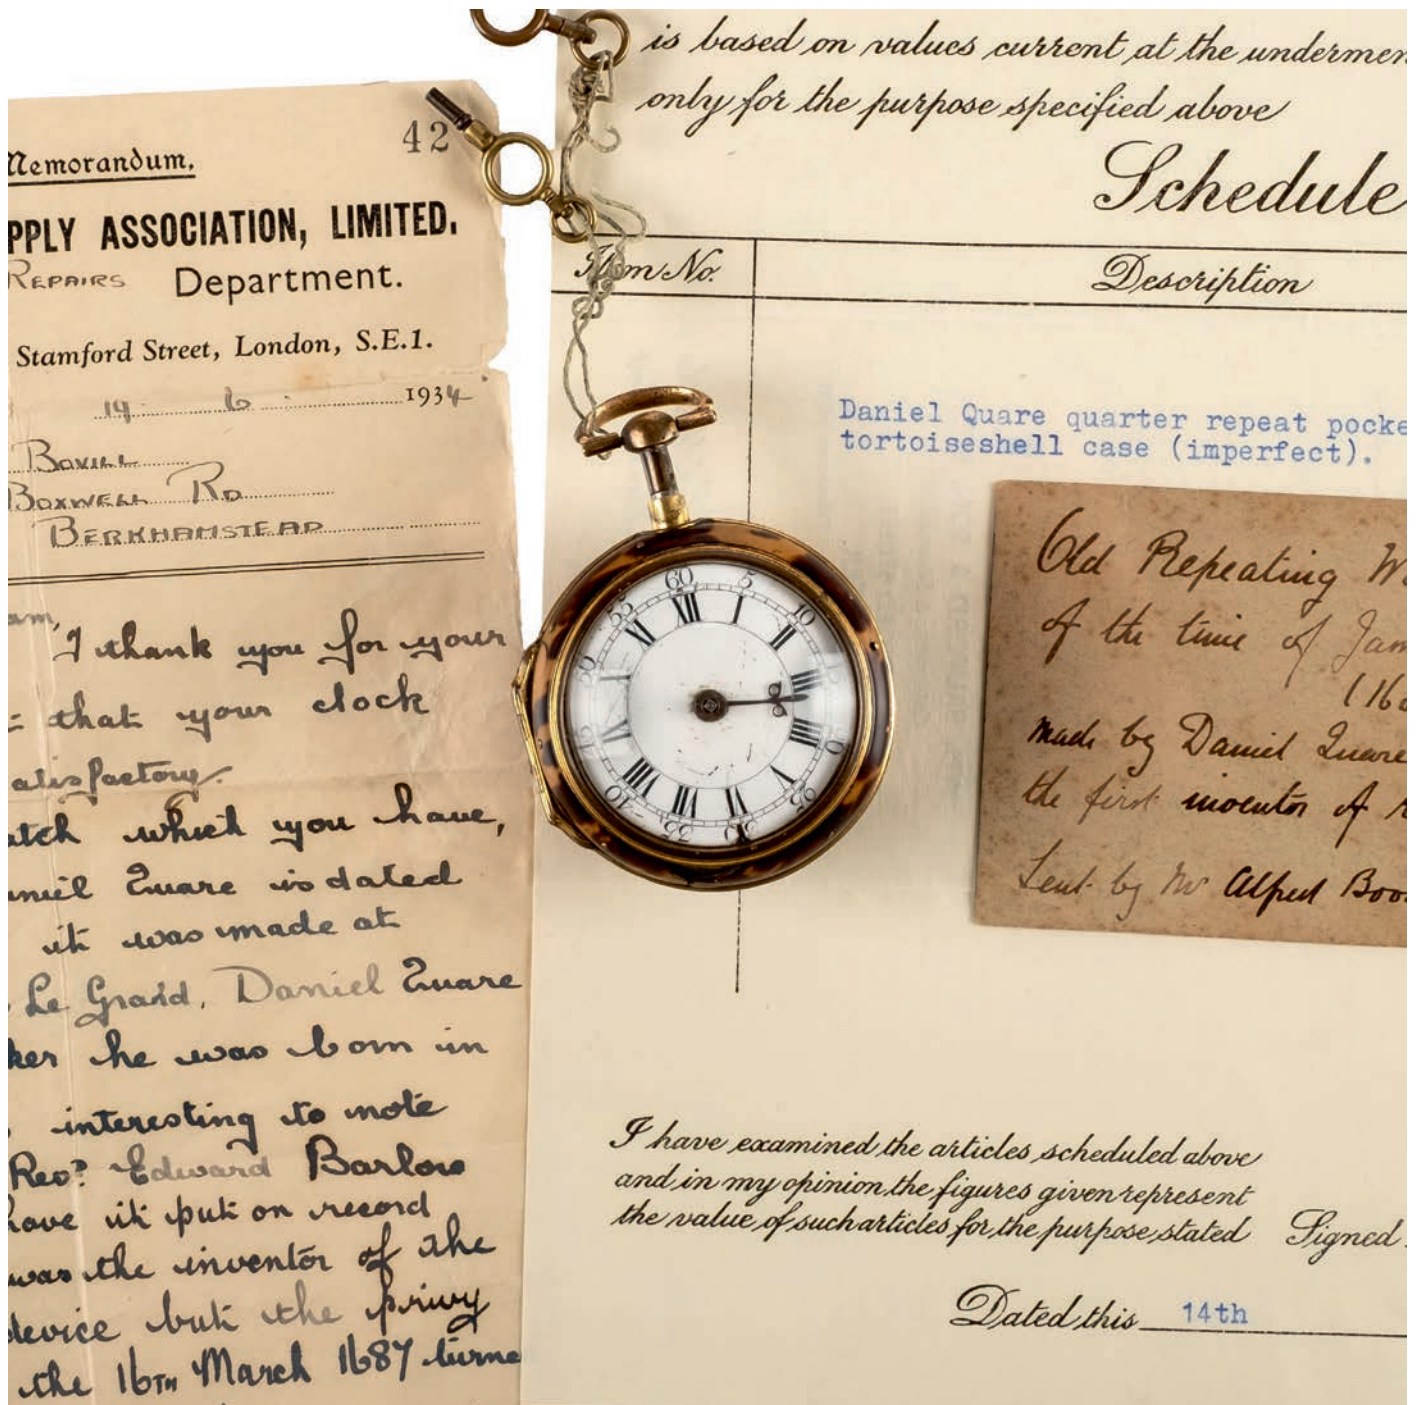 Memorandum.
42
PPLY ASSOCIATION, LIMITED.
REPAIRS Department.
Stamford Street, London, S.E.1.
14 6 1934
BOVILL
BOXWELL RD
BERKHAMSTEAD
am,
I thank you for your
that your clock
atisfactory.
atch which you have,
aniel Quare is dated
it was made at
Le Grand, Daniel Quare
ker he was born in
interesting to note
Revd Edward Barlow
have it put on record
was the inventor of the
device but the privy
the 16TH March 1687 turne
is based on values current at the undermen
only for the purpose specified above
Schedule
Item No.
Description
Daniel Quare quarter repeat pocke
tortoiseshell case (imperfect).
Old Repeating Wa
of the time of Jam
(168
made by Daniel Quare
the first inventor of r
Sent by Mr Alfred Boo
60 5 10
55
XII I II III IIII V VI VII VIII IX X XI
I have examined the articles scheduled above
and in my opinion the figures given represent
the value of such articles for the purpose stated
Signed
Dated this 14th